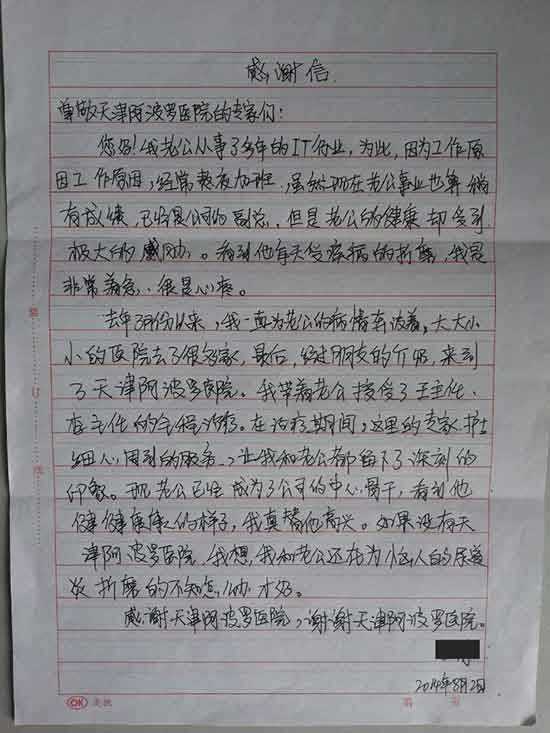 感谢信
尊敬天津阿波罗医院的专家们：
您好！我老公从事了多年的IT行业，为此，因为工作原
因工作原因，经常熬夜加班，虽然现在老公事业也算稍
有成绩，已经是公司的副总，但是老公的健康却受到
极大的威胁。看到他每天受疾病的折磨，我是
非常着急，很是心疼。
去年3月份以来，我一直为老公的病情奔波着，大大小
小的医院去了很多家，最后，经过朋友的介绍，来到
了天津阿波罗医院。我带着老公接受了王主任、
李主任的全程治疗。在治疗期间，这里的专家护士
细心周到的服务，让我和老公都留下了深刻的
印象。现老公已经成为了公司的中心骨干，看到他
健健康康的样子，我真替他高兴。如果没有天
津阿波罗医院，我想，我和老公还在为恼人的尿道
炎折磨的不知怎么办才好。
感谢天津阿波罗医院，谢谢天津阿波罗医院。
2014年8月2日
OK